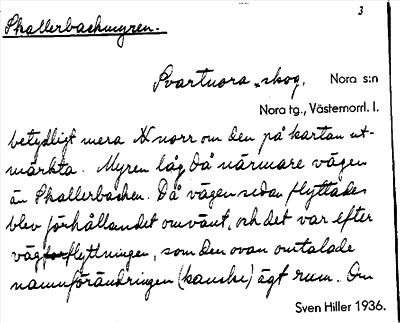 3
Skallerbackmyren.
Svartnora, skog, Nora s:n
Nora tg., Västernorrl. l.
betydligt mera N norr om den på kartan ut-
märkta. Myren låg då närmare vägen
än Skallerbacken. Då vägen sedan flyttades
blev förhållandet omvänt, och det var efter
vägflyttningen, som den ovan omtalade
namnförändringen (kanske) ägt rum. Om
Sven Hiller 1936.